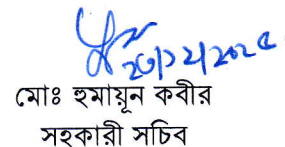 ২৩/১২/২০২৫
মোঃ হুমায়ূন কবীর
সহকারী সচিব